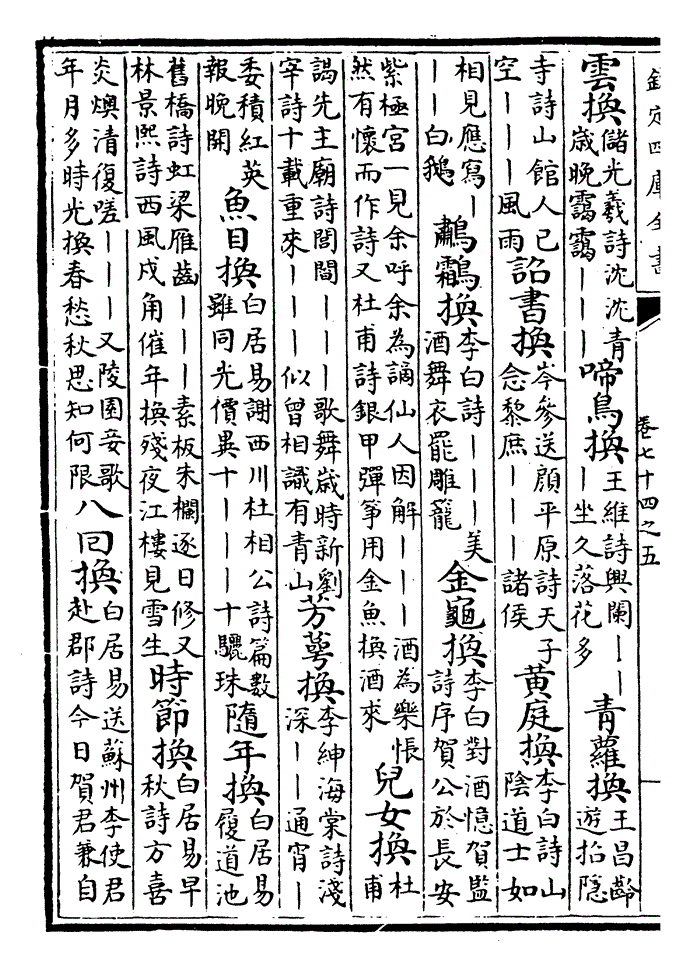 欽定四庫全書
卷七十四之五
雲換儲光羲詩沈沈青歲晚靄靄｜｜｜啼鳥換王維詩興闌｜｜｜坐久落花多青蘿換王昌齡遊招隱
寺詩山館人已空｜｜｜風雨詔書換岑參送顔平原詩天子念黎庶｜｜｜諸侯黄庭換李白詩山陰道士如
相見應寫｜｜｜白鵝鷫鸘換李白詩｜｜｜美酒舞衣罷雕籠金龜換李白對酒憶賀監詩序賀公於長安
紫極宫一見余呼余為謫仙人因解｜｜｜酒為樂悵然有懷而作詩又杜甫詩銀甲彈箏用金魚換酒求兒女換杜甫
謁先主廟詩閭閻｜｜｜歌舞歲時新劉宰詩十載重來｜｜｜似曾相識有青山芳萼換李紳海棠詩淺深｜｜通宵｜
委積紅英報晚開魚目換白居易謝西川杜相公詩篇數雖同光價異十｜｜｜十驪珠隨年換白居易履道池
舊橋詩虹梁雁齒｜｜｜素板朱欄逐日修又林景熙詩西風戍角催年換殘夜江樓見雪生時節換白居易早秋詩方喜
炎燠清復嗟｜｜｜又陵園妾歌年月多時光換春愁秋思知何限八回換白居易送蘇州李使君赴郡詩今日賀君兼自